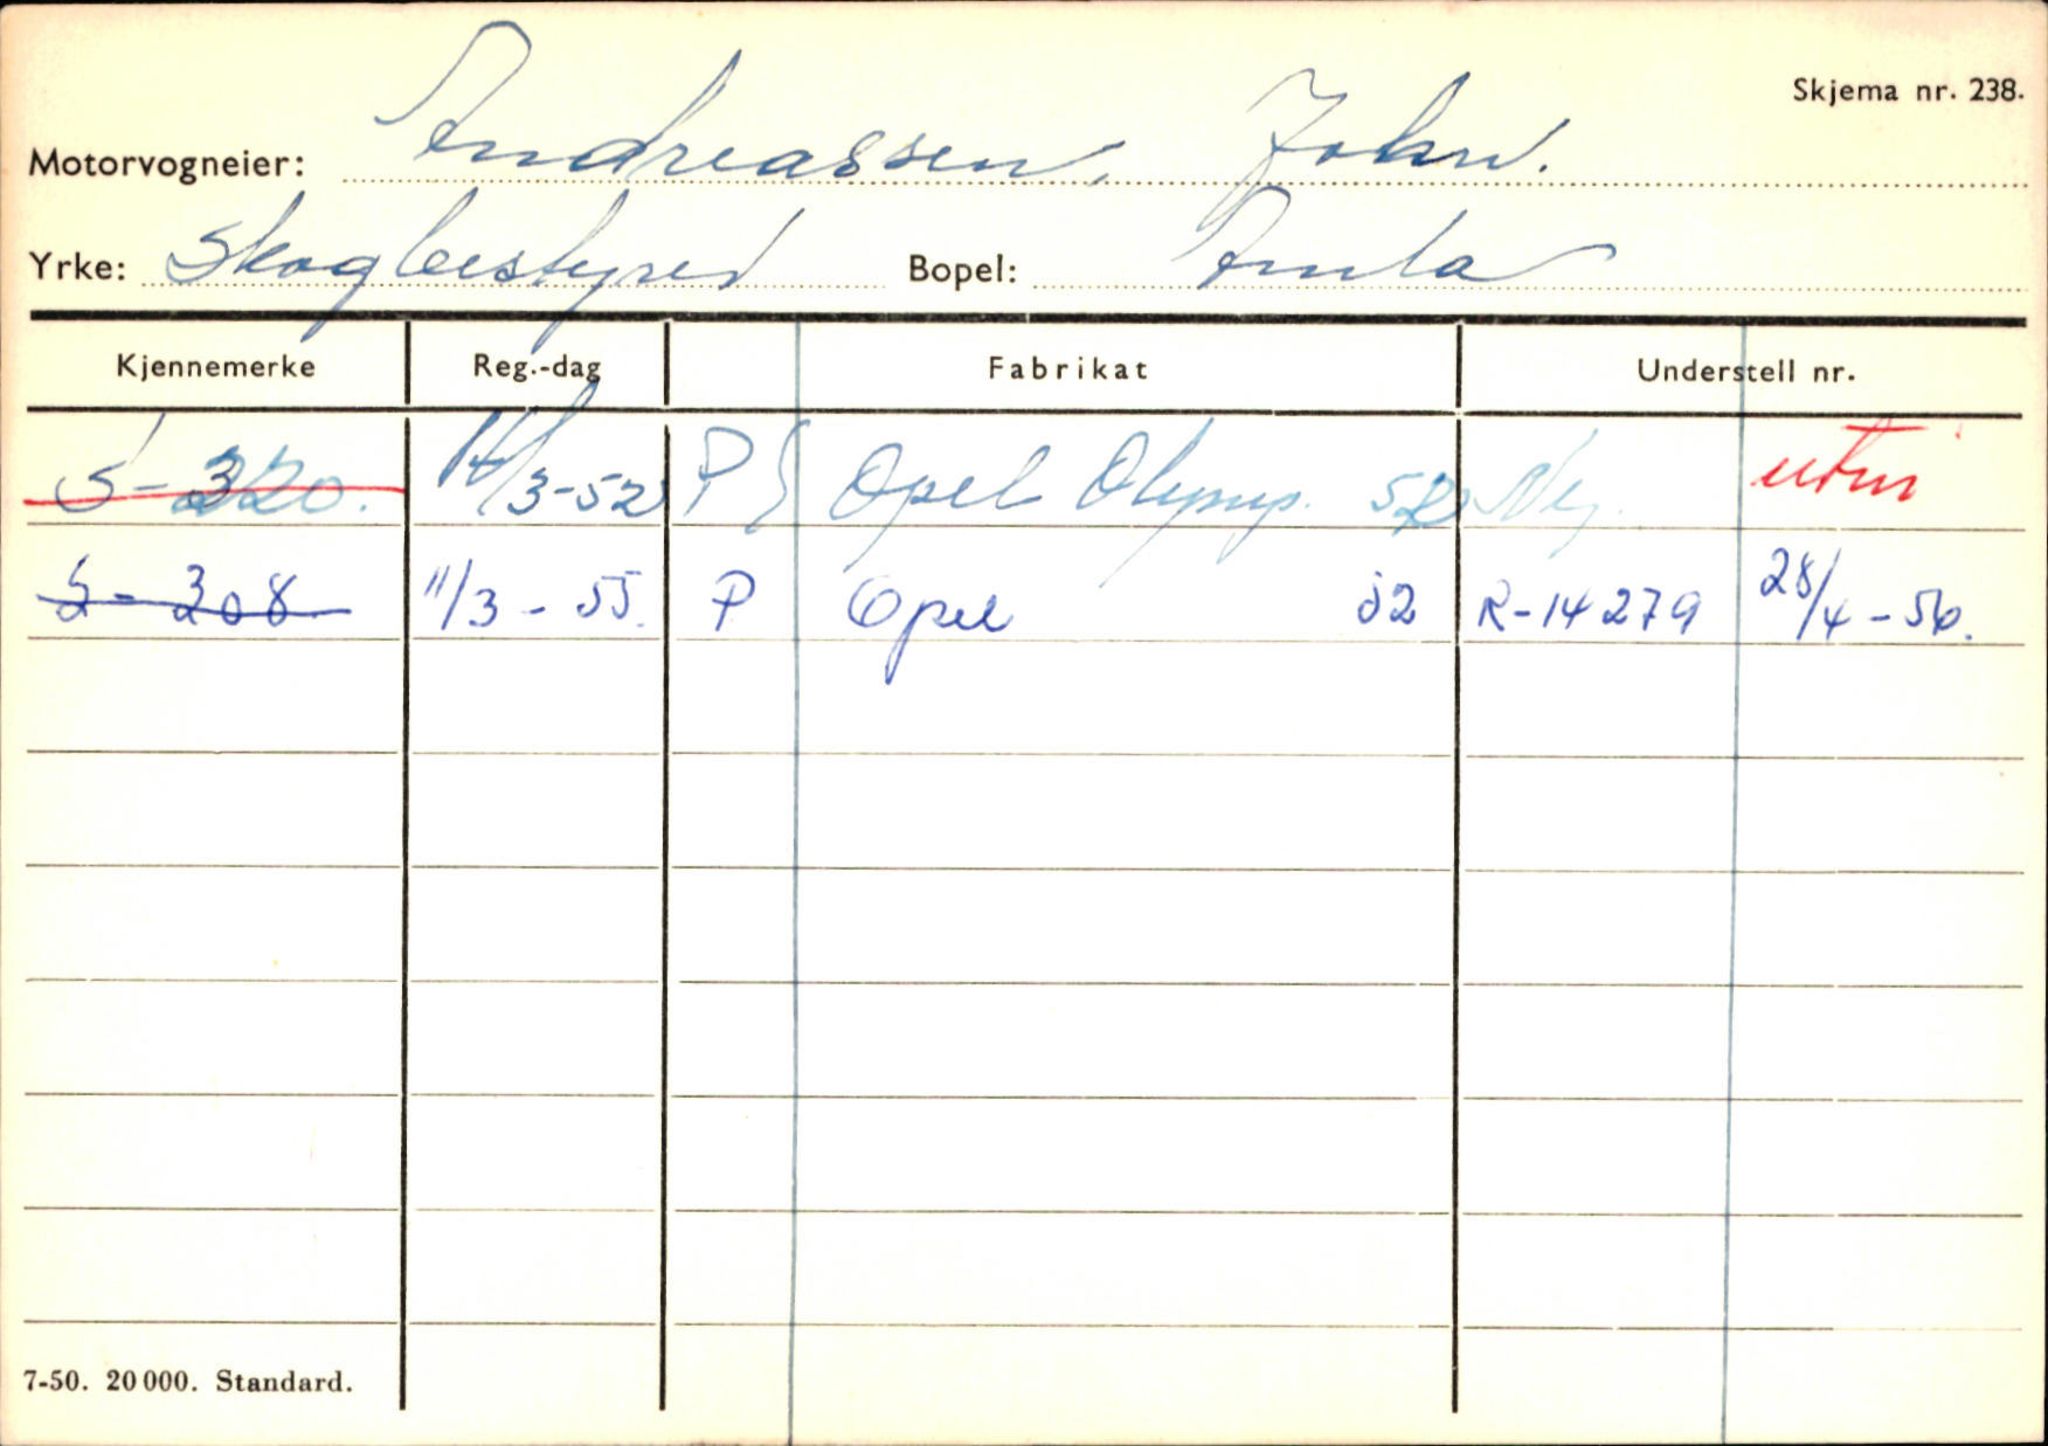 Skjema nr. 238.
Motorvogneier: Andreassen, John.
Yrke: Skogbestyrer Bopel: Amla
Kjennemerke Reg.-dag Fabrikat Understell nr.
S-320. 14/3-52 P Opel Olymp. 52
S-308 11/3-55. P Opel 52 R-14279 28/4-56.
7-50. 20000. Standard.